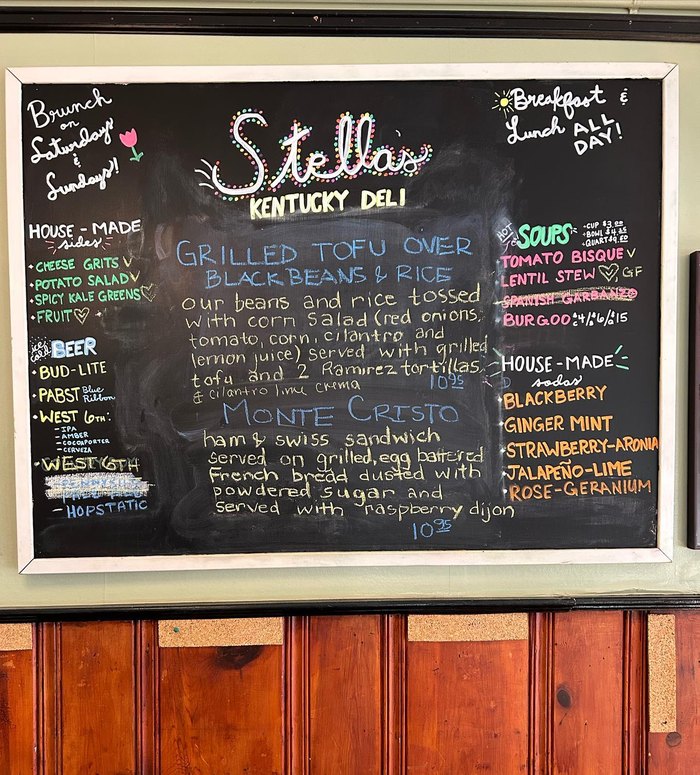 Brunch
on
Saturdays
&
Sundays!
HOUSE-MADE
sides
• CHEESE GRITS V
• POTATO SALAD V
• SPICY KALE GREENS ♡
• FRUIT ♡
ice cold BEER
• BUD-LITE
• PABST Blue Ribbon
• WEST 6TH:
- IPA
- AMBER
- COCOAPORTER
- CERVEZA
• WEST 6TH
- HOPSTATIC
Stella's
KENTUCKY DELI
GRILLED TOFU OVER
BLACK BEANS & RICE
our beans and rice tossed
with corn salad (red onions,
tomato, corn, cilantro and
lemon juice) served with grilled
tofu and 2 Ramirez tortillas,
& cilantro lime crema 10.95
MONTE CRISTO
ham & swiss sandwich
served on grilled, egg battered
French bread dusted with
powdered sugar and
served with raspberry dijon
10.95
Breakfast &
Lunch ALL
DAY!
HOT SOUPS
- CUP
- BOWL
- QUART
TOMATO BISQUE V
LENTIL STEW ♡ GF
SPANISH GARBANZO
BURGOO 4/6/15
HOUSE-MADE
sodas
BLACKBERRY
GINGER MINT
STRAWBERRY-ARONIA
JALAPEÑO-LIME
ROSE-GERANIUM